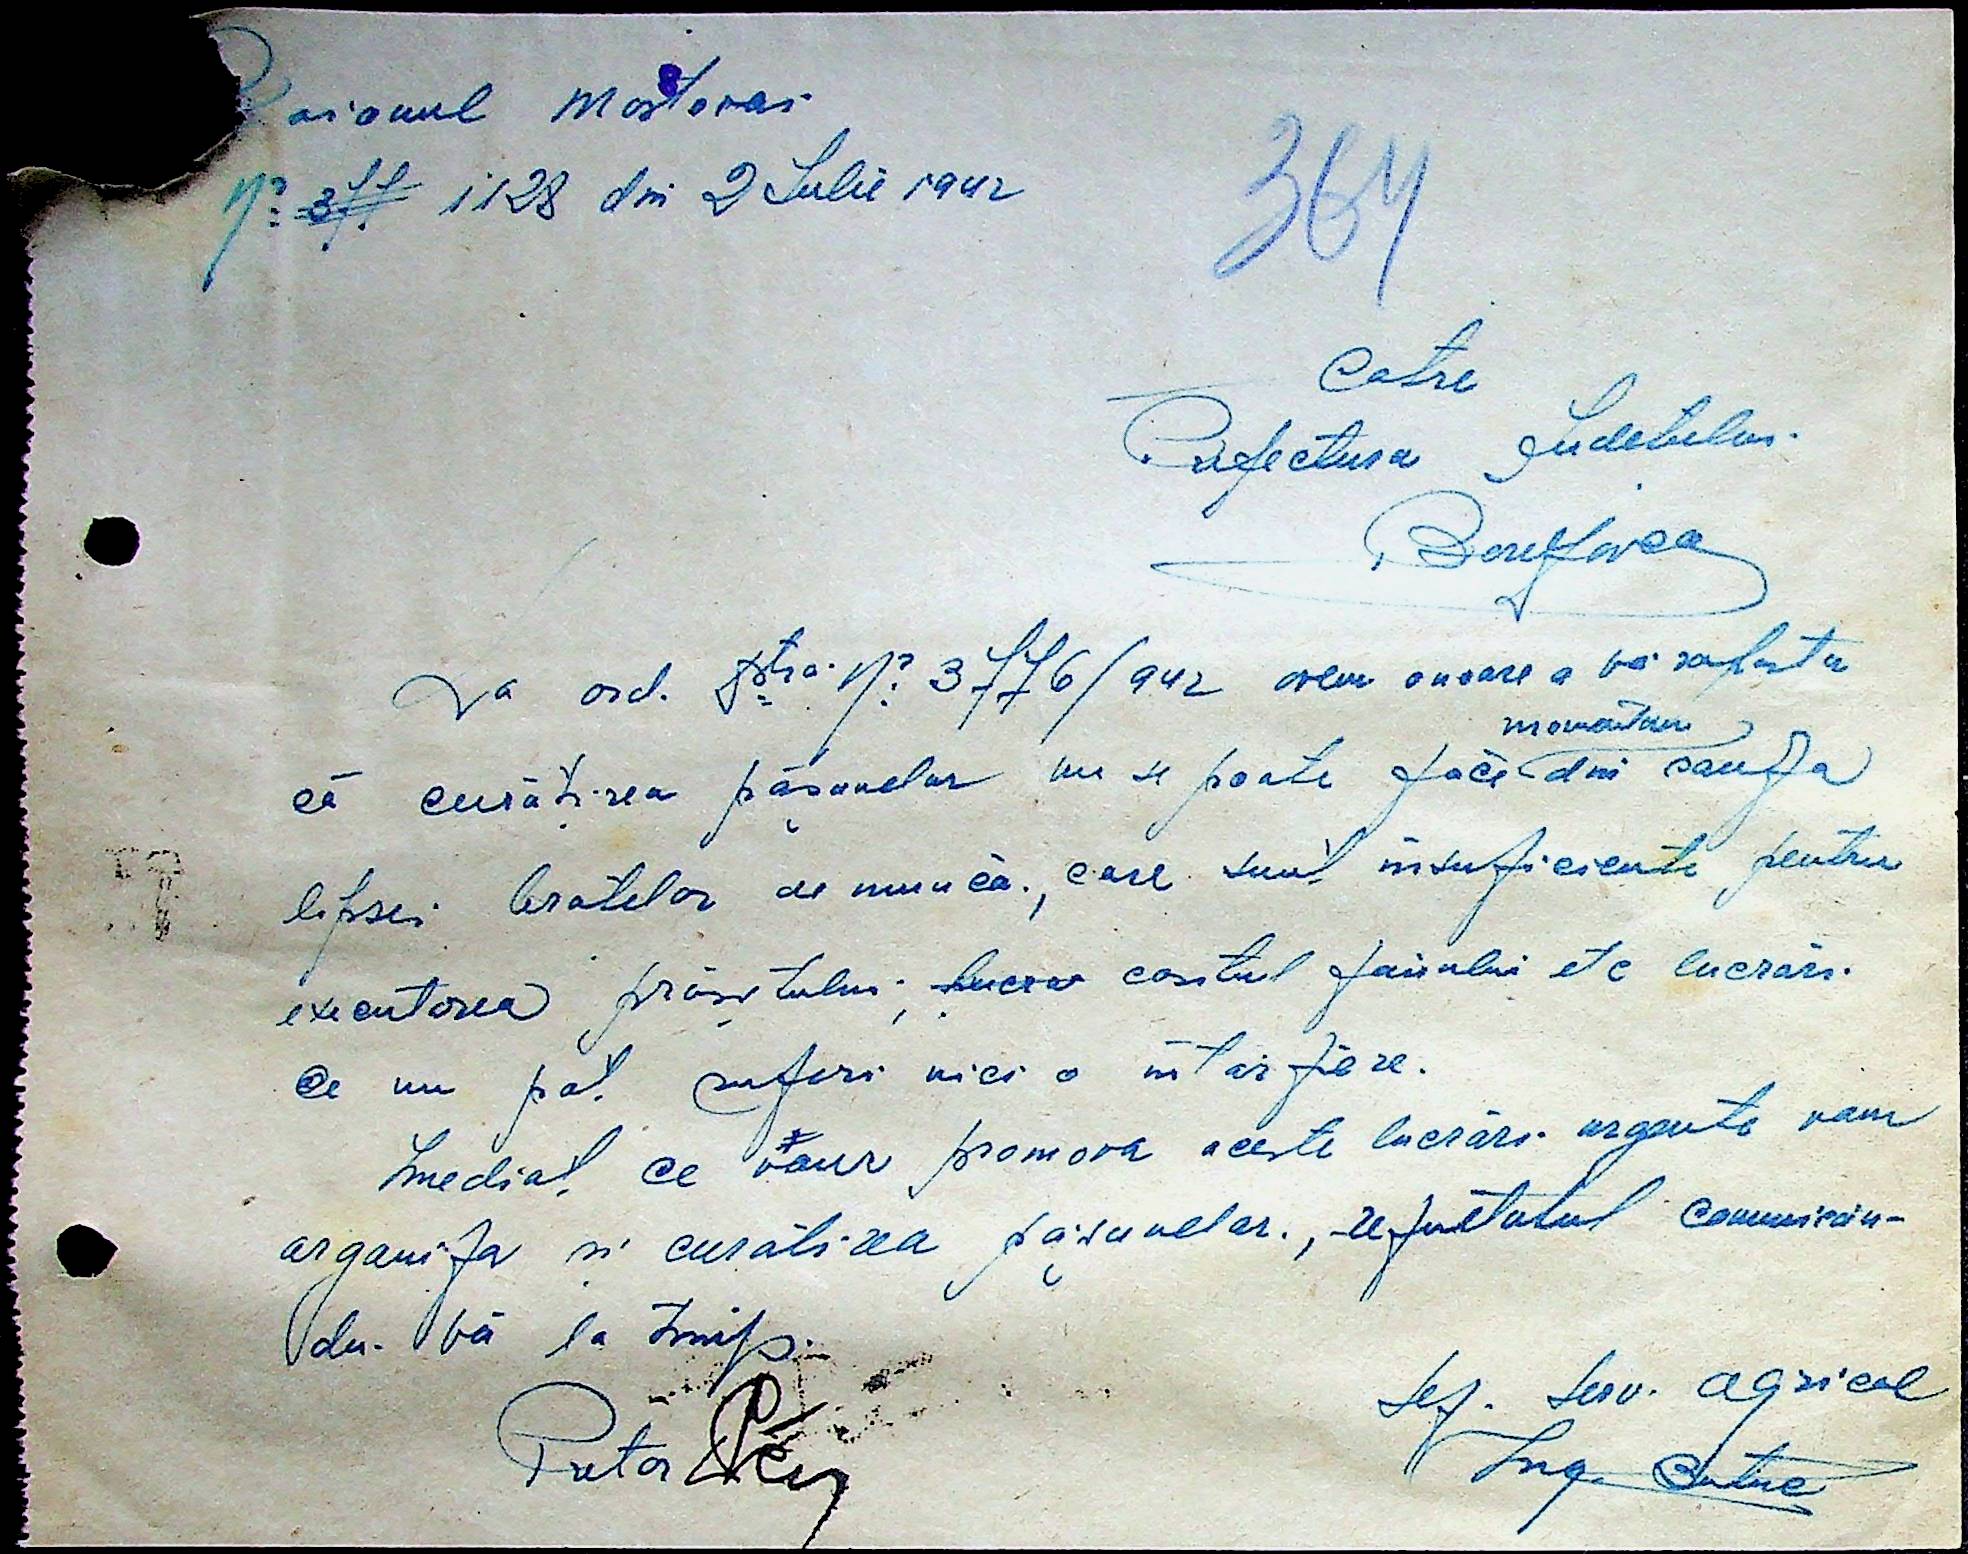 Raionul Mostovoi
Nº 377 1128 din 2 Iulie 1942
364
Catre
Prefectura Judetului
Berezovca
La ord. Dtră Nº 3776/942 avem onoare a vă raporta
momentan
că curătirea păşunelor nu se poate face din cauza
lipsei bratelor de muncă, care sunt insuficiente pentru
executarea prăşitului, lucrar cositul fânului etc lucrări
ce nu pot suferi nici o intârziere.
Imediat ce vom promova aceste lucrări urgente vom
organiza şi curătirea păşunelor, rezultatul comunicân-
du-vă la timp.
Pretor
Şef. Serv. Agricol
Ing.